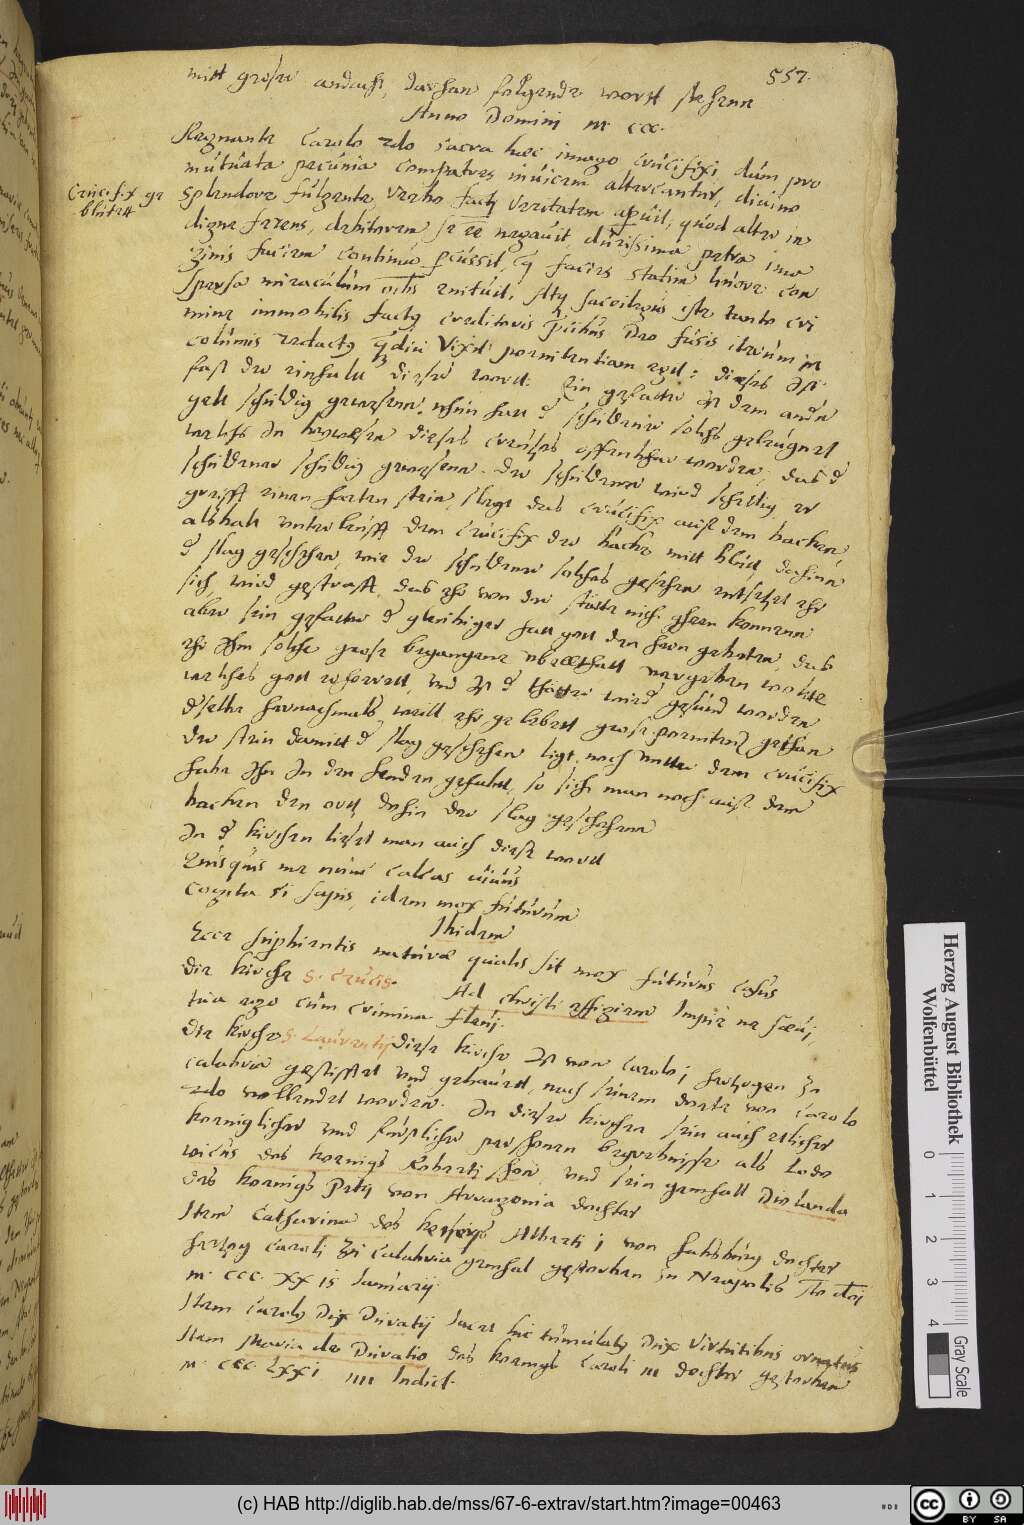 557.
mitt groser andacht, darhan folgende wortt stehenn
Anno Domini m ccc.
Regnante Carolo 2do sacra haec imago crucifixi, dum pro
mutuata pecunia compatres inuicem altercantur, diuino
Crucifix ge
blutett
splendore fulgente, verbo facto veritatem aperuit, quod alter in
digne ferens, debitorem se ee negauit, durissima petra ima
ginis faciem continuo percussit, facies statim liuore con
spersa miraculum enituit.
mine immobilis creditoris Deo fusis iterum in
columis redactus quamdiu vixit poenitentiam egit:
fast der einfalt dieser wortt. Ein gefatter ist dem andern
gelt schuldig gewesenn, nhun hatt der schuldener solchs geleugnet
welchs in beywesen dieses creutzes offenbhar worden, das der
schuldener schuldig gewesenn. der schuldener wird schellig er
greifft einen harten stein, slegt das crucifix auff dem backen,
alsbalt unterleufft dem crucifix der backe mitt blutt, dahinn
der slag geschehen, wie der schuldener solches gesehen entsetzet ehr
sich, wird gestrafft, das ehr von der stette nich gehen konnenn
aber sein gefatter der gleubiger hatt gott den hern gebeten, das
ehr ihm solche grose begangene ubeltthatt vergeben wolte
welches gott erhorett, und ist der thetter wider gesund worden
derselbe hernachmals, weill ehr gelebett grose poenitenz gethan
der stein damitt der slag geschehen ligt noch unter dem crucifix
habe ihn in den henden gehabtt, so sicht man noch auff dem
backen den ortt dahin der slag geschehenn
In der kirchen lieset man auch diese wortt
Quisquis me nunc calcas uiuus
cogita si sapis, idem mox futurum
Ibidem
Ecce superbientis naturae qualis sit mox futurus casus
die kirche S. Crucis.
Ad christi effigiem Impie ne saeui,
tua ego cum crimina fleui.
die kirche S. Laurentij diese kirche ist von Carolo j hertzogen zu
calabria gestifftet und gebauet, nach seinem dotte von Carolo
2do vollendet worden. In dieser kirchen sein auch etlicher
koeniglicher und furstlicher personen begrebnisse als Lodo
uicus des koenigs Roberti shon, und sein gemhall Diolanda
des koenigs Petri von Arragonia dochter
Item Catharina des keysers Alberti j von habsburg dochter
hertzog Caroli zu calabria gemhal gestorben zu Neapolis Ao dni
m. ccc. xx 15 Januarij
Item Carolus Dux Duratij Iacet hic tumulatus Dux virtutibus ornatus
Item Maria de Duratio des koenigs Caroli III dochter gestorben
m. ccc. LXXI IIII Indict.
Herzog August Bibliothek
Wolfenbüttel
0 1 2 3 4
Gray Scale
(c) HAB http://diglib.hab.de/mss/67-6-extrav/start.htm?image=00463
HAB
cc BY SA